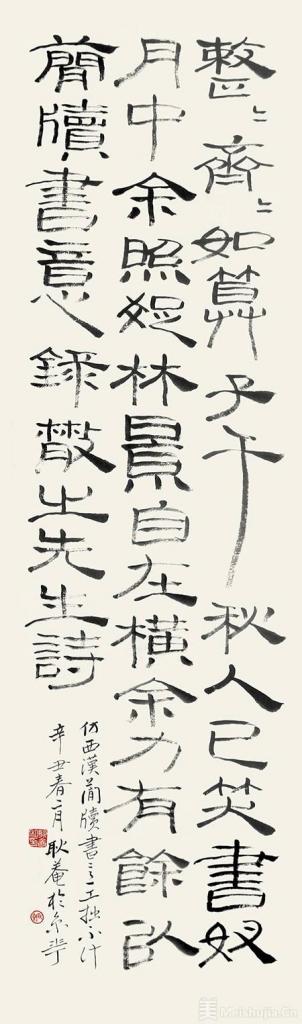 整〻齊〻如算子千秋人已笑書奴
月中余照疏林景自在橫余力有餘以
簡牘書意錄散之先生詩
仿西漢簡牘書之工拙不计
辛丑春二月耿菴於京華
美 Meishujia.Cn